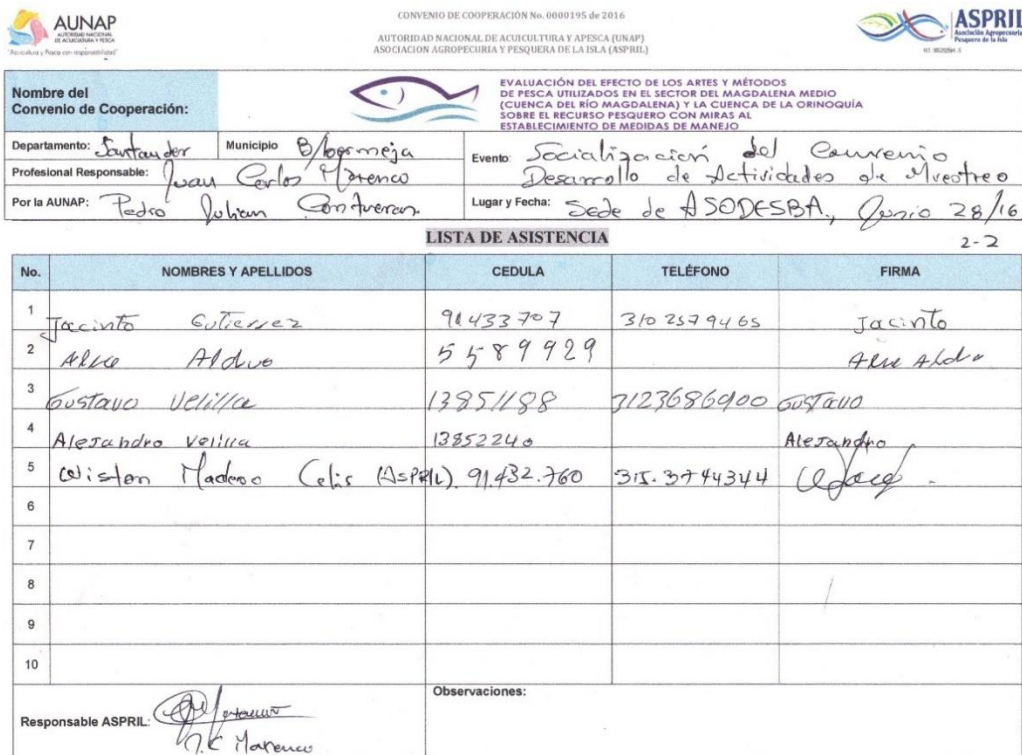 AUNAP
AUTORIDAD NACIONAL
DE ACUICULTURA Y PESCA
"Acuicultura y Pesca con responsabilidad"
CONVENIO DE COOPERACIÓN No. 0000195 de 2016
AUTORIDAD NACIONAL DE ACUICULTURA Y APESCA (UNAP)
ASOCIACION AGROPECURIA Y PESQUERA DE LA ISLA (ASPRIL)
ASPRIL
Asociación Agropecuaria
Pesquera de la Isla
Nombre del
Convenio de Cooperación:
EVALUACIÓN DEL EFECTO DE LOS ARTES Y MÉTODOS
DE PESCA UTILIZADOS EN EL SECTOR DEL MAGDALENA MEDIO
(CUENCA DEL RÍO MAGDALENA) Y LA CUENCA DE LA ORINOQUÍA
SOBRE EL RECURSO PESQUERO CON MIRAS AL
ESTABLECIMIENTO DE MEDIDAS DE MANEJO
Departamento: Santander Municipio B/bermeja
Profesional Responsable: Juan Carlos Marenco
Por la AUNAP: Pedro Julian Contreras.
Evento: Socialización del Convenio
Desarrollo de Actividades de Muestreo
Lugar y Fecha: Sede de ASODESBA, Junio 28/16
LISTA DE ASISTENCIA
2-2
No. NOMBRES Y APELLIDOS CEDULA TELÉFONO FIRMA
1 Jacinto Gutierrez 91433707 310 2579465 Jacinto
2 5589929
3 Gustavo Velilla 13851188 3123686900 Gustavo
4 Alejandro Velilla 13852240 Alejandro
5 Wiston Madero Celis (ASPRIL) 91.432.760 315.3744344
6
7
8
9
10
Responsable ASPRIL: J.C Marenco
Observaciones: